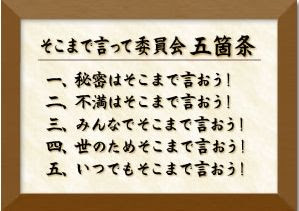 そこまで言って委員会 五箇条
一、秘密はそこまで言おう!
二、不満はそこまで言おう!
三、みんなでそこまで言おう!
四、世のためそこまで言おう!
五、いつでもそこまで言おう!